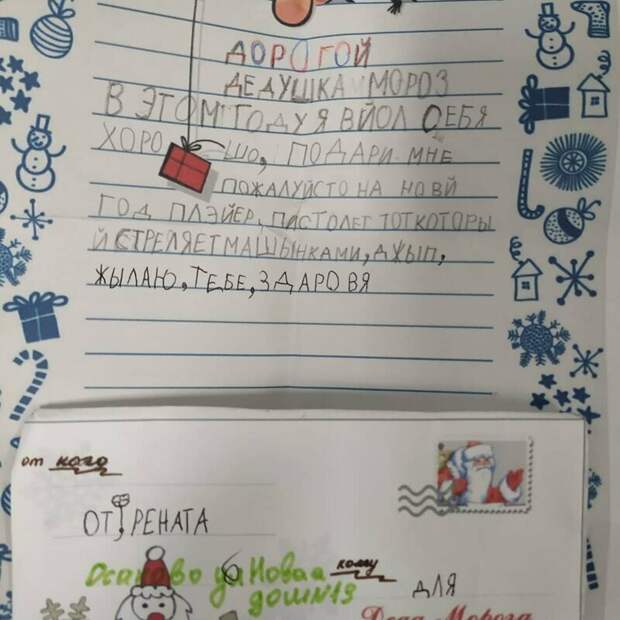 ДОРОГОЙ
ДЕДУШКА МОРОЗ
В ЭТОМ ГОДУ Я ВЙОЛ СЕБЯ
ХОРО ШО, ПОДАРИ МНЕ
ПОЖАЛУЙСТО НА НОВЙ
ГОД ПЛЭЙЕР, ПАСТОЛЕТ ТОТ КОТОРЫ
Й СТРЕЛЯЕТ МАШЫНКАМИ, ДЖЫП,
ЖЫЛАЮ, ТЕБЕ, ЗДАРОВЯ
от кого
ОТ, РЕНАТА
ул Новая
кому
дом №13
ДЛЯ
Деда Мороза